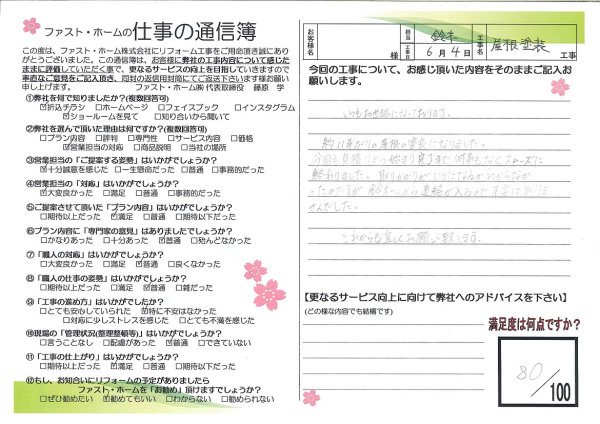 ファスト・ホームの仕事の通信簿
この度は、ファスト・ホーム株式会社にリフォーム工事をご用命頂き誠にあり
がとうございました。この通信簿は、お客様に弊社の工事内容について感じた
ままに評価していただく事で、更なるサービスの向上を目指していきますので
率直なご意見をご記入頂き、同封の返信用封筒にてご返送下さいます様お願い
申し上げます。 ファスト・ホーム㈱ 代表取締役 藤原 学
①弊社を何で知りましたか?(複数回答可)
☑折込チラシ □ホームページ □フェイスブック □インスタグラム
☑ショールームを見て □知り合いから聞いて
②弊社を選んで頂いた理由は何ですか?(複数回答可)
□プラン内容 □評判 □専門性 □サービス内容 □価格
☑営業担当の対応 □商品説明 □当社の場所
③営業担当の「ご提案する姿勢」はいかがでしょうか?
☑十分誠意を感じた □一生懸命だった □普通 □事務的だった
④営業担当の「対応」はいかがでしょうか?
☑大変良かった □満足 □普通 □事務的だった
⑤ご提案させて頂いた「プラン内容」はいかがでしょうか?
□期待以上だった ☑満足 □普通 □期待以下だった
⑥プラン内容に「専門家の意見」はありましたでしょうか?
□かなりあった □十分あった ☑普通 □殆んどなかった
⑦「職人の対応」はいかがでしょうか?
□大変良かった □満足 ☑普通 □良くなかった
⑧「職人の仕事の姿勢」はいかがでしょうか?
□期待以上だった □満足 ☑普通 □雑だった
⑨「工事の進め方」はいかがでしたか?
□とても安心していられた ☑特に不安はなかった
□対応に少しストレスを感じた □とても不満を感じた
⑩現場の「管理状況(整理整頓等)」はいかがでしょうか?
□言うことなし □配慮があった ☑普通 □できていない
⑪「工事の仕上がり」はいかがでしょうか?
□期待以上だった □満足 ☑普通 □期待以下だった
⑫もし、お知合いにリフォームの予定がありましたら
ファスト・ホームを「お勧め」頂けますでしょうか?
□ぜひ勧めたい ☑勧めてもいい □わからない □勧められない
お客様名 様 担当 鈴木 工事日 6月4日 工事名 屋根塗装 工事
今回の工事について、お感じ頂いた内容をそのままご記入お
願いします。
いつもお世話になっております。
の屋根の塗装になりました。
今回も見積りから始まり完了まで何事もなくスムーズに
終わりました。
せんでした。
これからも宜しくお願い致します。
【更なるサービス向上に向けて弊社へのアドバイスを下さい】
(どの様な内容でも結構です)
満足度は何点ですか?
80/100